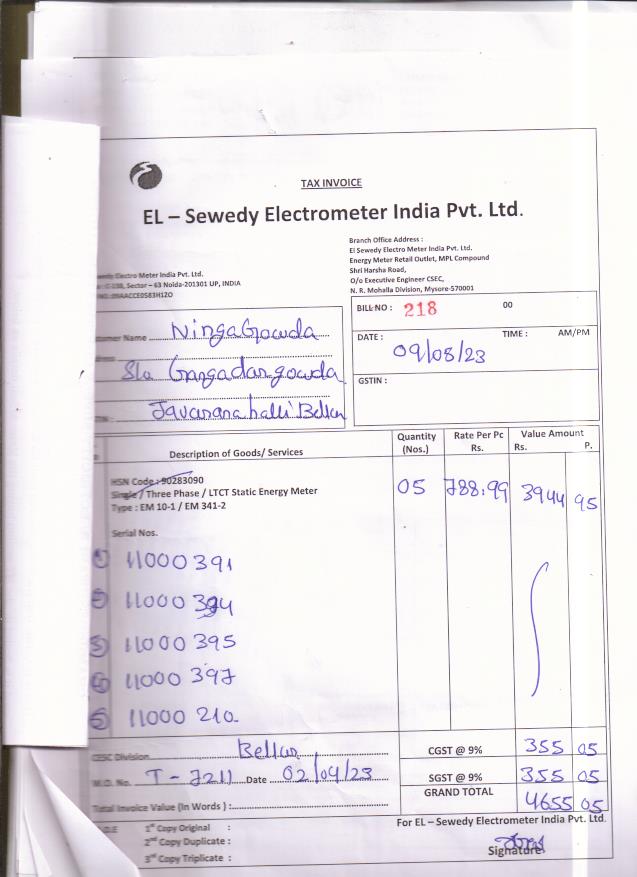 TAX INVOICE
EL – Sewedy Electrometer India Pvt. Ltd.
Branch Office Address :
El Sewedy Electro Meter India Pvt. Ltd.
Energy Meter Retail Outlet, MPL Compound
Shri Harsha Road,
O/o Executive Engineer CSEC,
N. R. Mohalla Division, Mysore-570001
Electro Meter India Pvt. Ltd.
Sector – 63 Noida-201301 UP, INDIA
BILL NO : 218 00
DATE : TIME : AM/PM
09/08/23
GSTIN :
Name NingaGowda
S/o Gangadargowda
Javaranahalli Bellur
Description of Goods/ Services Quantity (Nos.) Rate Per Pc Rs. Value Amount Rs. P.
HSN Code : 90283090
Single / Three Phase / LTCT Static Energy Meter 05 788.99 3944 95
Type : EM 10-1 / EM 341-2
Serial Nos.
① 11000391
② 11000394
③ 11000395
④ 11000397
⑤ 11000210
CESC Division Bellur CGST @ 9% 355 05
No. T-7211 Date 02/04/23 SGST @ 9% 355 05
GRAND TOTAL 4655 05
Total Invoice Value (In Words) :
For EL – Sewedy Electrometer India Pvt. Ltd.
1st Copy Original :
2nd Copy Duplicate :
3rd Copy Triplicate :
Signature